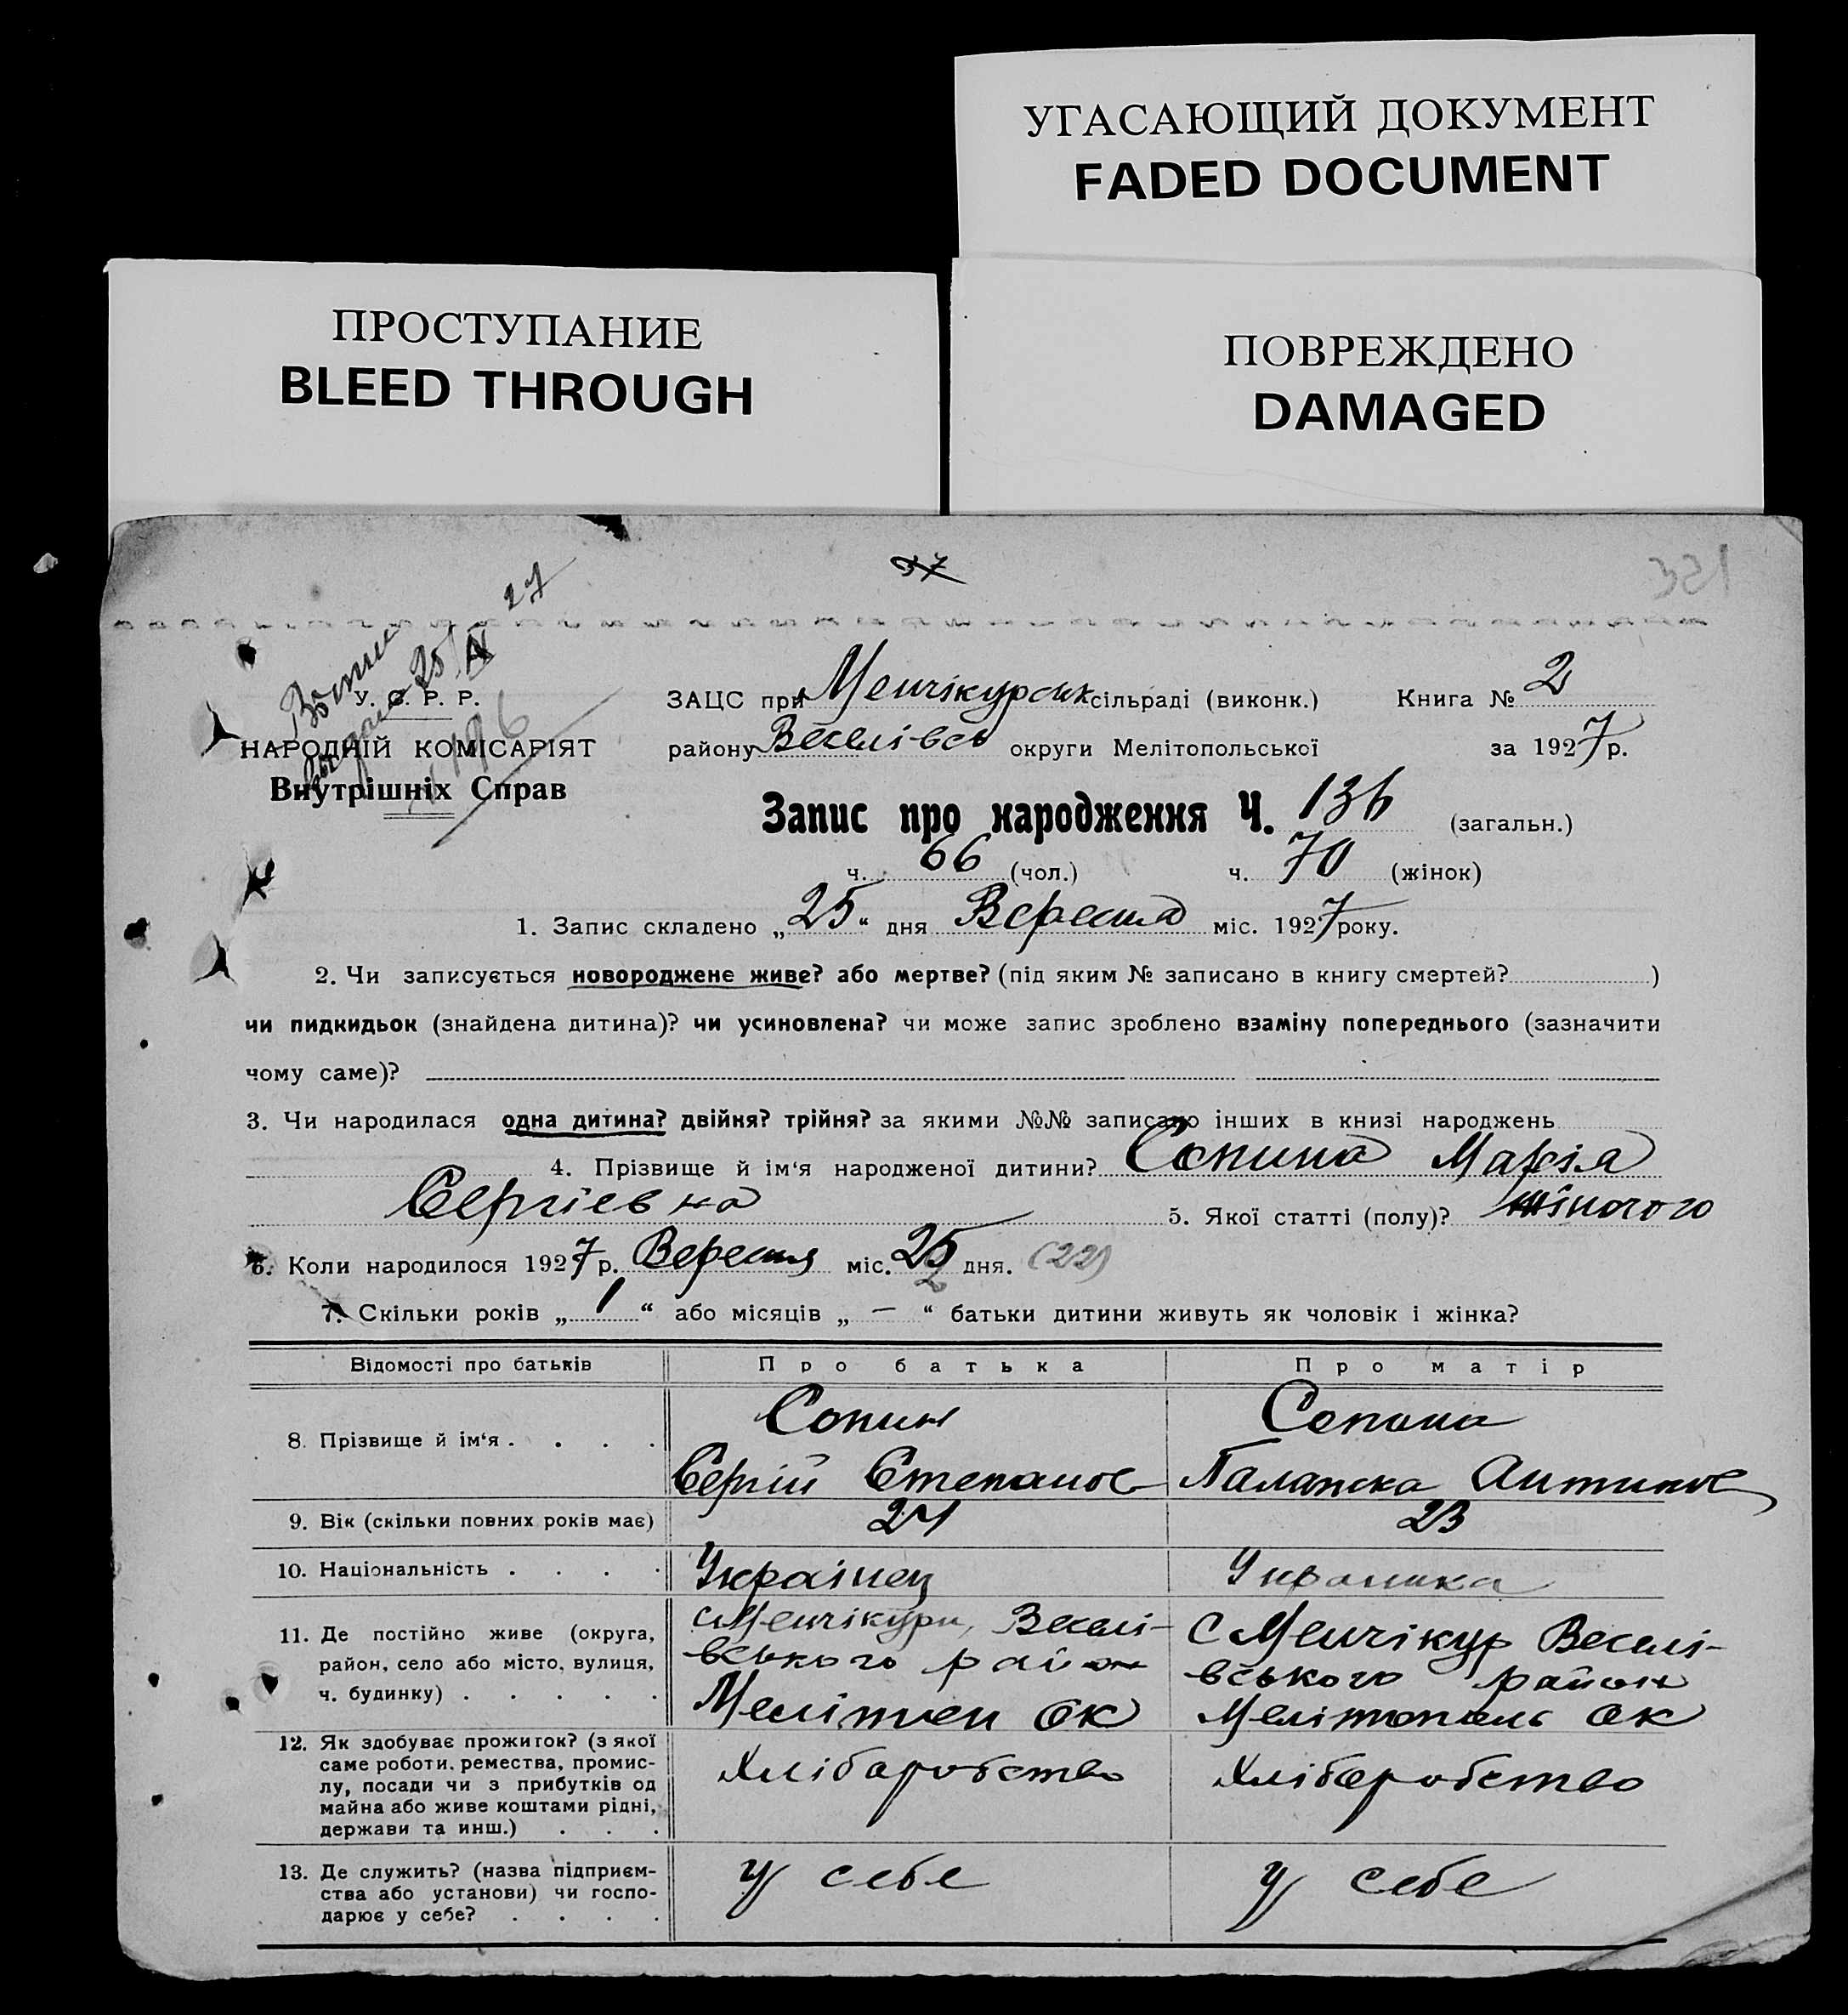 УГАСАЮЩИЙ ДОКУМЕНТ
FADED DOCUMENT
ПРОСТУПАНИЕ
BLEED THROUGH
ПОВРЕЖДЕНО
DAMAGED
37
351
27
25/IX
У. С. Р. Р.
НАРОДНІЙ КОМІСАРІЯТ
Внутрішніх Справ
ЗАЦС при Менчікурськ сільраді (виконк.) Книга № 2
району Веселівсь округи Мелітопольської за 1927 р.
Запис про народження Ч. 136 (загальн.)
ч. 66 (чол.) ч. 70 (жінок)
1. Запис складено „25“ дня Вересня міс. 1927 року.
2. Чи записується новороджене живе? або мертве? (під яким № записано в книгу смертей? )
чи пидкидьок (знайдена дитина)? чи усиновлена? чи може запис зроблено взаміну попереднього (зазначити
чому саме)?
3. Чи народилася одна дитина? двійня? трійня? за якими №№ записано інших в книзі народжень
4. Прізвище й ім‘я народженої дитини? Сопина Марія
Сергіевна 5. Якої статті (полу)? жіночого
6. Коли народилося 1927 р. Вересня міс. 25 дня. (22)
7. Скільки років „1“ або місяців „—“ батьки дитини живуть як чоловік і жінка?
Відомості про батьків Про батька Про матір
8. Прізвище й ім‘я . . . . Сопин Сопина
Сергій Степанов Палажка Антинов
9. Вік (скільки повних років має) 24 23
10. Національність . . . . Українец Украинка
11. Де постійно живе (округа, район, село або місто, вулиця, ч. будинку) . . . . .
с Менчікури, Веселі-
вського район
Мелітоп ок
С Менчікур Веселі-
вського район
Мелітополь ок
12. Як здобуває прожиток? (з якої саме роботи, ремества, промис-
лу, посади чи з прибутків од
майна або живе коштами рідні,
держави та инш.) . . .
Хліборобство Хліборобство
13. Де служить? (назва підприєм-
ства або установи) чи госпо-
дарює у себе? . . . .
у себе у себе